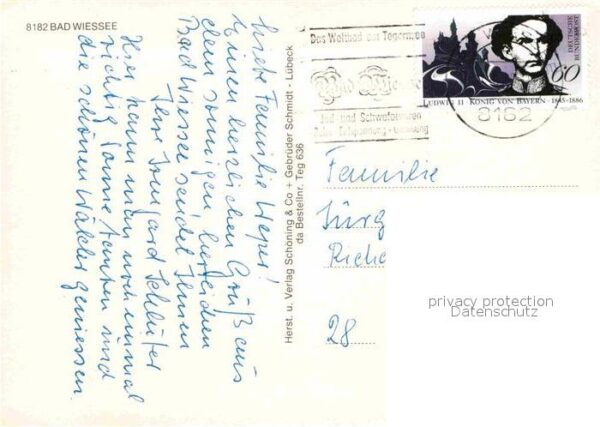 8182 BAD WIESSEE
Liebe Familie
Einen herzlichen Gruß aus
dem sonnigen, herrlichen
Bad Wiessee sendet Ihnen
Ihre Irmgard Schlüter
Hier kann man noch einmal
richtig Sonne tanken und
die schönen Wälder geniessen.
Herst. u. Verlag Schöning & Co + Gebrüder Schmidt - Lübeck
da Bestellnr. Teg 636
Das Weltbad am Tegernsee
Bad Wiessee
Jod- und Schwefelthermen
Entspannung
8182
DEUTSCHE BUNDESPOST
60
LUDWIG II · KÖNIG VON BAYERN · 1845-1886
Familie
Jürg
28
privacy protection
Datenschutz